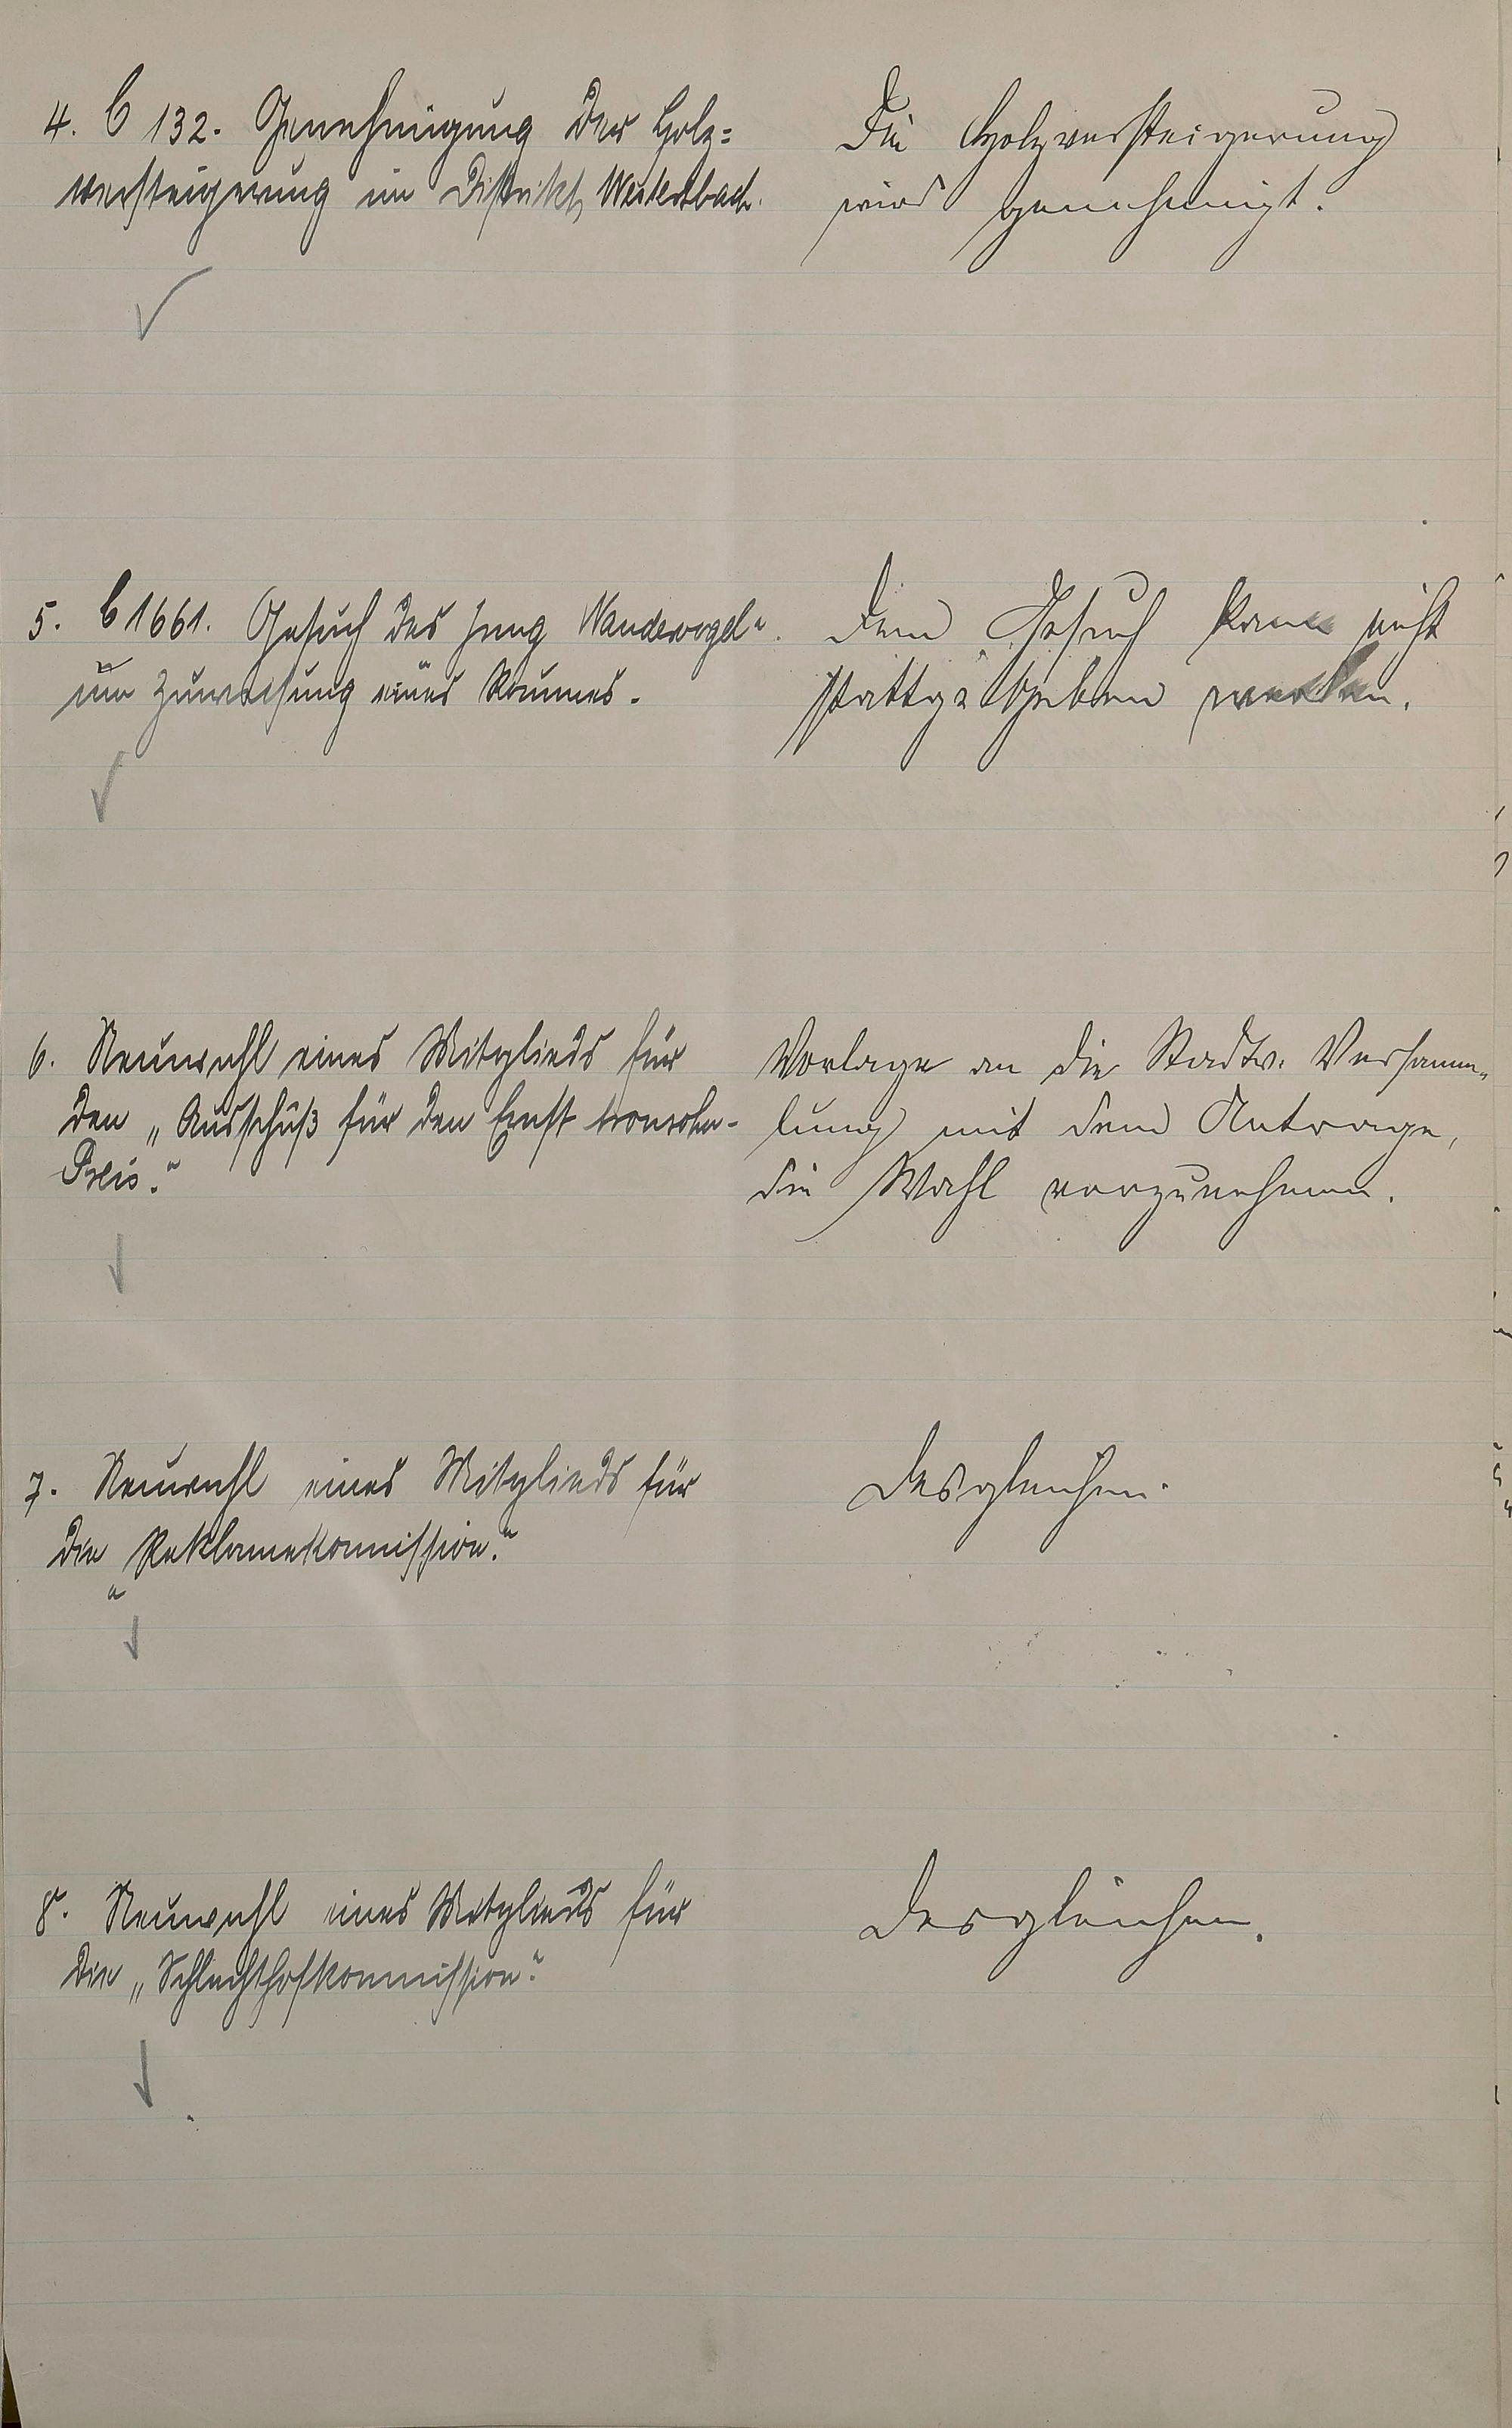 4. C 132. Genehmigung der Holz=
versteigerung im Distrikt Weikertbach.
Die Holzversteigerung
wird genehmigt.
5. C 1661. Gesuch des Jung Wandervogel"
um Zuweisung eines Raumes.
Dem Gesuch kann nicht
stattgegeben werden.
6. Neuwahl eines Mitglieds für
den „Ausschuß für den Ernst
Preis."
Vorlage an die Stadtv. Versamm=
lung mit dem Antrage,
die Wahl vorzunehmen.
7. Neuwahl eines Mitglieds für
die „Reklamekommission."
Desgleichen.
8. Neuwahl eines Mitglieds für
die „Schlachthofkommission."
Desgleichen.